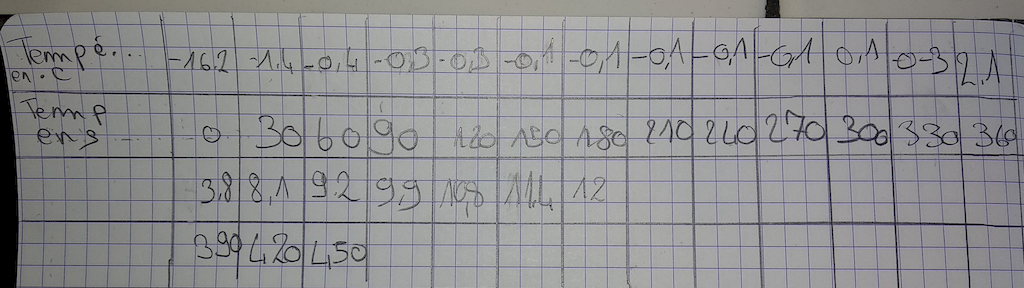 Tempé... -16.2 -1.4 -0,4 -0,3 -0,3 -0,1 -0,1 -0,1 -0,1 -0,1 0,1 0-3 2,1
en °C
Temp 0 30 60 90 120 150 180 210 240 270 300 330 360
en s
3,8 8,1 9.2 9,9 10,8 11,4 12
390 420 450